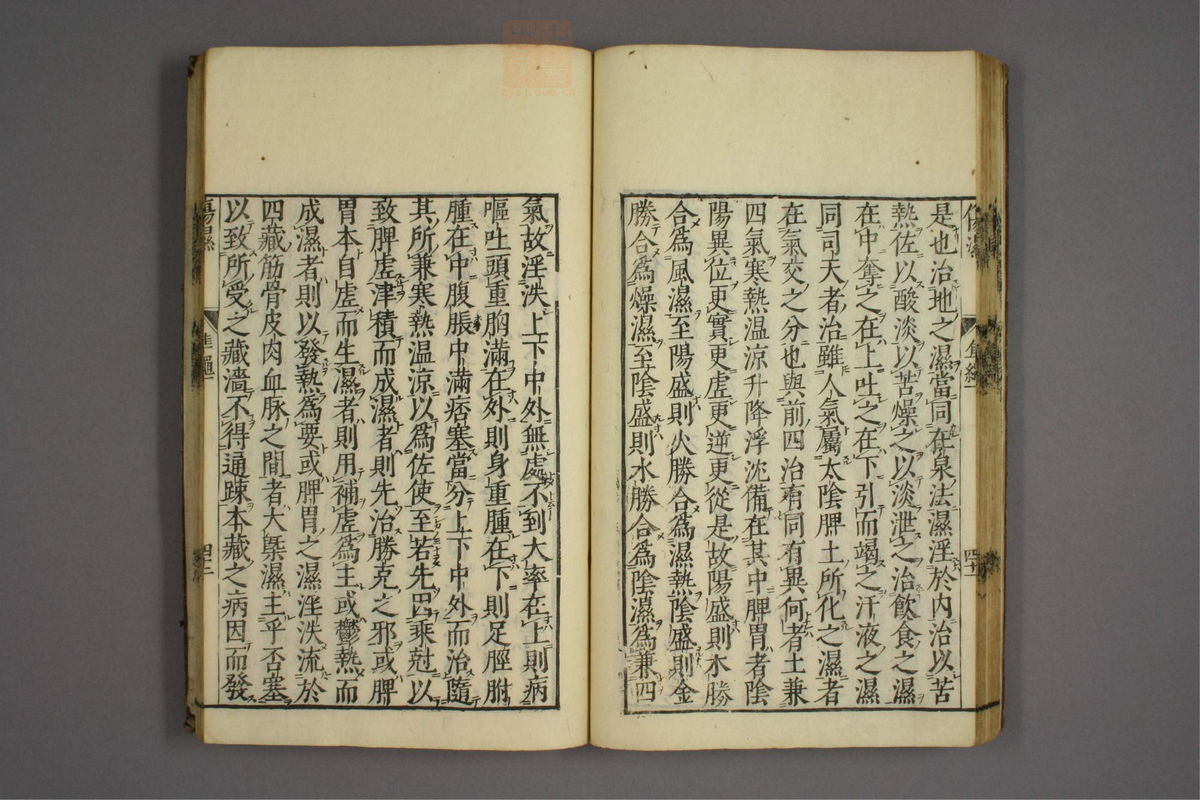 是也治地之濕當同在泉法濕淫於內治以苦
熱佐以酸淡以苦燥之以淡泄之治飲食之濕
在中奪之在上吐之在下引而竭之汗液之濕
同司天者治雖人氣屬太陰脾土所化之濕者
在氣交之分也與前四治有同有異何者土兼
四氣寒熱溫涼升降浮沈備在其中脾胃者陰
陽異位更實更虛更逆更從是故陽盛則木勝
合為風濕至陽盛則火勝合為濕熱陰盛則金
勝合為燥濕至陰盛則水勝合為陰濕為兼四
氣故淫泆上下中外無處不到大率在上則病
嘔吐頭重胸滿在外則身重腫在下則足脛胕
腫在中腹脹中滿痞塞當分上下中外而治隨
其所兼寒熱溫涼以為佐使至若先因乘尅以
致脾虛津積而成濕者則先治勝克之邪或脾
胃本自虛而生濕者則用補虛為主或鬱熱而
成濕者則以發熱為要或脾胃之濕淫泆流於
四藏筋骨皮肉血脉之間者大槩濕主乎否塞
以致所受之藏濇不得通踈本藏之病因而發
傷濕